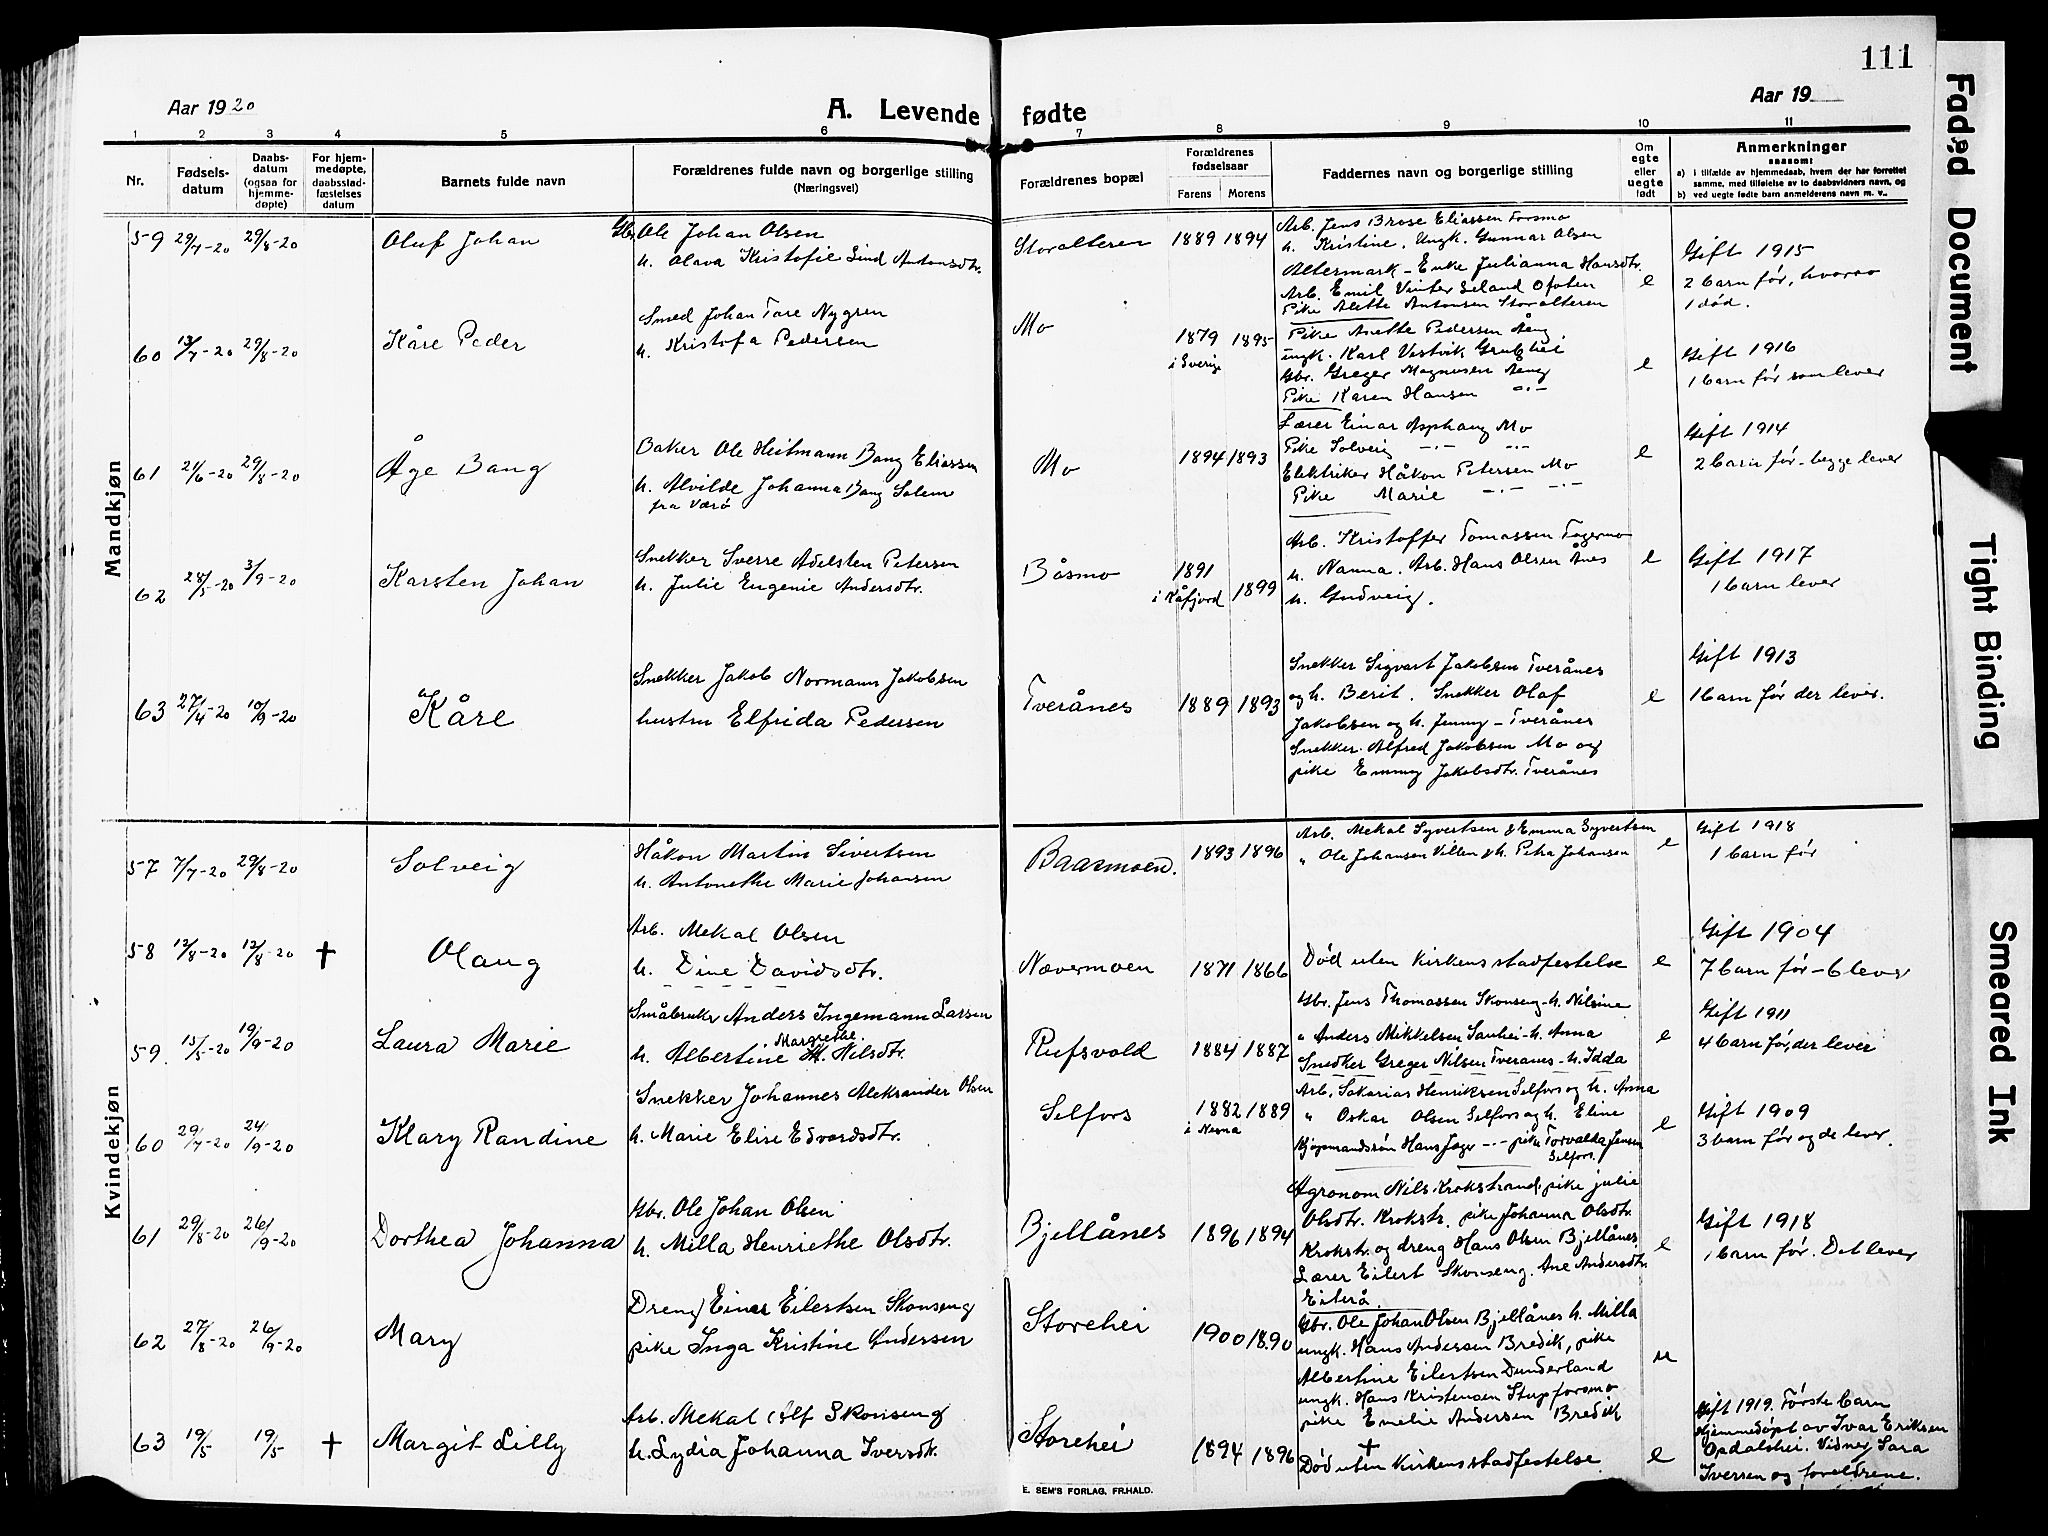 111
Aar 1920
A. Levende fødte
Aar 19
1 2 3 4 5 6 7 8 9 10 11
Nr.
Fødsels-
datum
Daabs-
datum
(ogsaa for
hjemme-
døpte)
For hjem-
medøpte,
daabsstad-
fæstelses
datum
Barnets fulde navn
Forældrenes fulde navn og borgerlige stilling
(Næringsvei)
Forældrenes bopæl
Forældrenes
fødselsaar
Farens Morens
Faddernes navn og borgerlige stilling
Om
egte
eller
uegte
født
Anmerkninger
saasom:
a) i tilfælde av hjemmedaab, hvem der har forrettet
samme, med tilføielse av to daabsvidners navn, og
b) ved uegte fødte barn anmelderens navn m. v..
Mandkjøn
59 29/7-20 29/8-20 Oluf Johan
Gbr. Ole Johan Olsen
h. Olava Kristofie Lind Antonsdtr.
Storalteren 1889 1894
Arb. Jens Brose Eliassen Forsmo
h. Kristine. Ungk. Gunnar Olsen
Altermark - Enke Julianna Hansdtr.
Arb. Emil Vinter Leland Ofoten
Pike Alette Antonsen Storalteren
e
Gift 1915
2 barn før, hvorav
1 død.
60 13/7-20 29/8-20 Kåre Peder
Smed Johan Tore Nygren
h. Kristofa Pedersen
Mo 1879 1895
i Sverige
Pike Anette Pedersen Aeng
ungk. Karl Vestvik Grubhei
Gbr. Greger Magnusen Aeng
Pike Karen Hansen -"-
e
Gift 1916
1 barn før som lever
61 21/6-20 29/8-20 Åge Bang
Baker Ole Heitmann Bang Eliassen
h. Alvilde Johanna Bang Solem
fra Værø
Mo 1894 1893
Lærer Einar Asphaug Mo
Pike Solveig -"- -"-
Elektriker Håkon Petersen Mo
Pike Marie -"- -"-
e
Gift 1914
2 barn før - begge lever
62 28/5-20 3/9-20 Karsten Johan
Snekker Sverre Adelsten Petersen
h. Julie Eugenie Andersdtr.
Båsmo 1891 1899
i Kåfjord
Arb. Kristoffer Tomassen Fagermo
h. Nanna. Arb. Hans Olsen Ånes
h. Gudveig.
e
Gift 1917
1 barn lever
63 27/4-20 10/9-20 Kåre
Snekker Jakob Normann Jakobsen
hustru Elfrida Pedersen
Tverånes 1889 1893
Snekker Sigvart Jakobsen Tverånes
og h. Berit. Snekker Olaf
Jakobsen og h. Jenny - Tverånes
Snekker Alfred Jakobsen Mo og
pike Emmy Jakobsdtr. Tverånes
e
Gift 1913
1 barn før der lever.
Kvindekjøn
57 7/7-20 29/8-20 Solveig
Håkon Martin Sivertsen
h. Antonethe Marie Johansen
Baasmoen. 1893 1896
Arb. Mekal Syvertsen & Emma Syvertsen
" Ole Johansen Villen & h. Petra Johansen
e
Gift 1918
1 barn før
58 12/8-20 12/8-20 † Olaug
Arb. Mekal Olsen
h. Dine Davidsdtr.
Nævermoen 1871 1866
Død uten kirkens stadfestelse
e
Gift 1904
7 barn før - 6 lever
59. 15/5-20 19/9-20 Laura Marie
Småbruker Anders Ingemann Larsen
Margrethe.
h. Albertine M. Nilsdtr.
Rufsvold 1884 1887
Gbr. Jens Thomassen Skonseng - h. Nilsine
" Anders Mikkelsen Sauhei - h. Anna
Snedker Greger Nilsen Tveraanes - h. Idda
e
Gift 1911
4 barn før, der lever
60 29/7-20 24/9-20 Klary Randine
Snekker Johannes Aleksander Olsen
h. Marie Elise Edvardsdtr.
Selfors 1882 1889
i Nesna
Arb. Sakarias Henriksen Selfors og h. Anna
" Oskar Olsen Selfors og h. Eline
Kjøpmandssøn Hans Jager -"- pike Torvalda Jensen
Selfors.
e
Gift 1909
3 barn før og de lever.
61 29/8-20 26/9-20 Dorthea Johanna
Gbr. Ole Johan Olsen
h. Milla Henriethe Olsdtr.
Bjellånes 1896 1894
Agronom Nils Krokstrand, pike Julie
Olsdtr. Krokstr. pike Johanna Olsdtr.
Krokstr. og dreng Hans Olsen Bjellånes
Lærer Eilert Skonseng. Ane Andersdtr.
Eiterå.
e
Gift 1918
1 barn før. Det lever
62 27/8-20 26/9-20 Mary
Dreng Einar Eilertsen Skonseng
pike Inga Kristine Andersen
Storehei 1900 1890
Gbr. Ole Johan Olsen Bjellånes h. Milla
ungk. Hans Andersen Bredik, pike
Albertine Eilertsen Dunderland
ungk. Hans Kristensen Stupforsmo
pike Emelie Andersen Bredik
u
63 19/5 19/5 † Margit Lilly
Arb. Mekal Alf Skonseng
h. Lydia Johanna Iversdtr.
Storehei 1894 1896
†
Død uten kirkens stadfestelse
e
Gift 1919. Første barn
Hjemmedøpt av Ivar Eriksen
Opdalshei. Vidner Sara
Iversen og foreldrene.
E. SEM'S FORLAG, FR.HALD.
Faded Document
Tight Binding
Smeared Ink